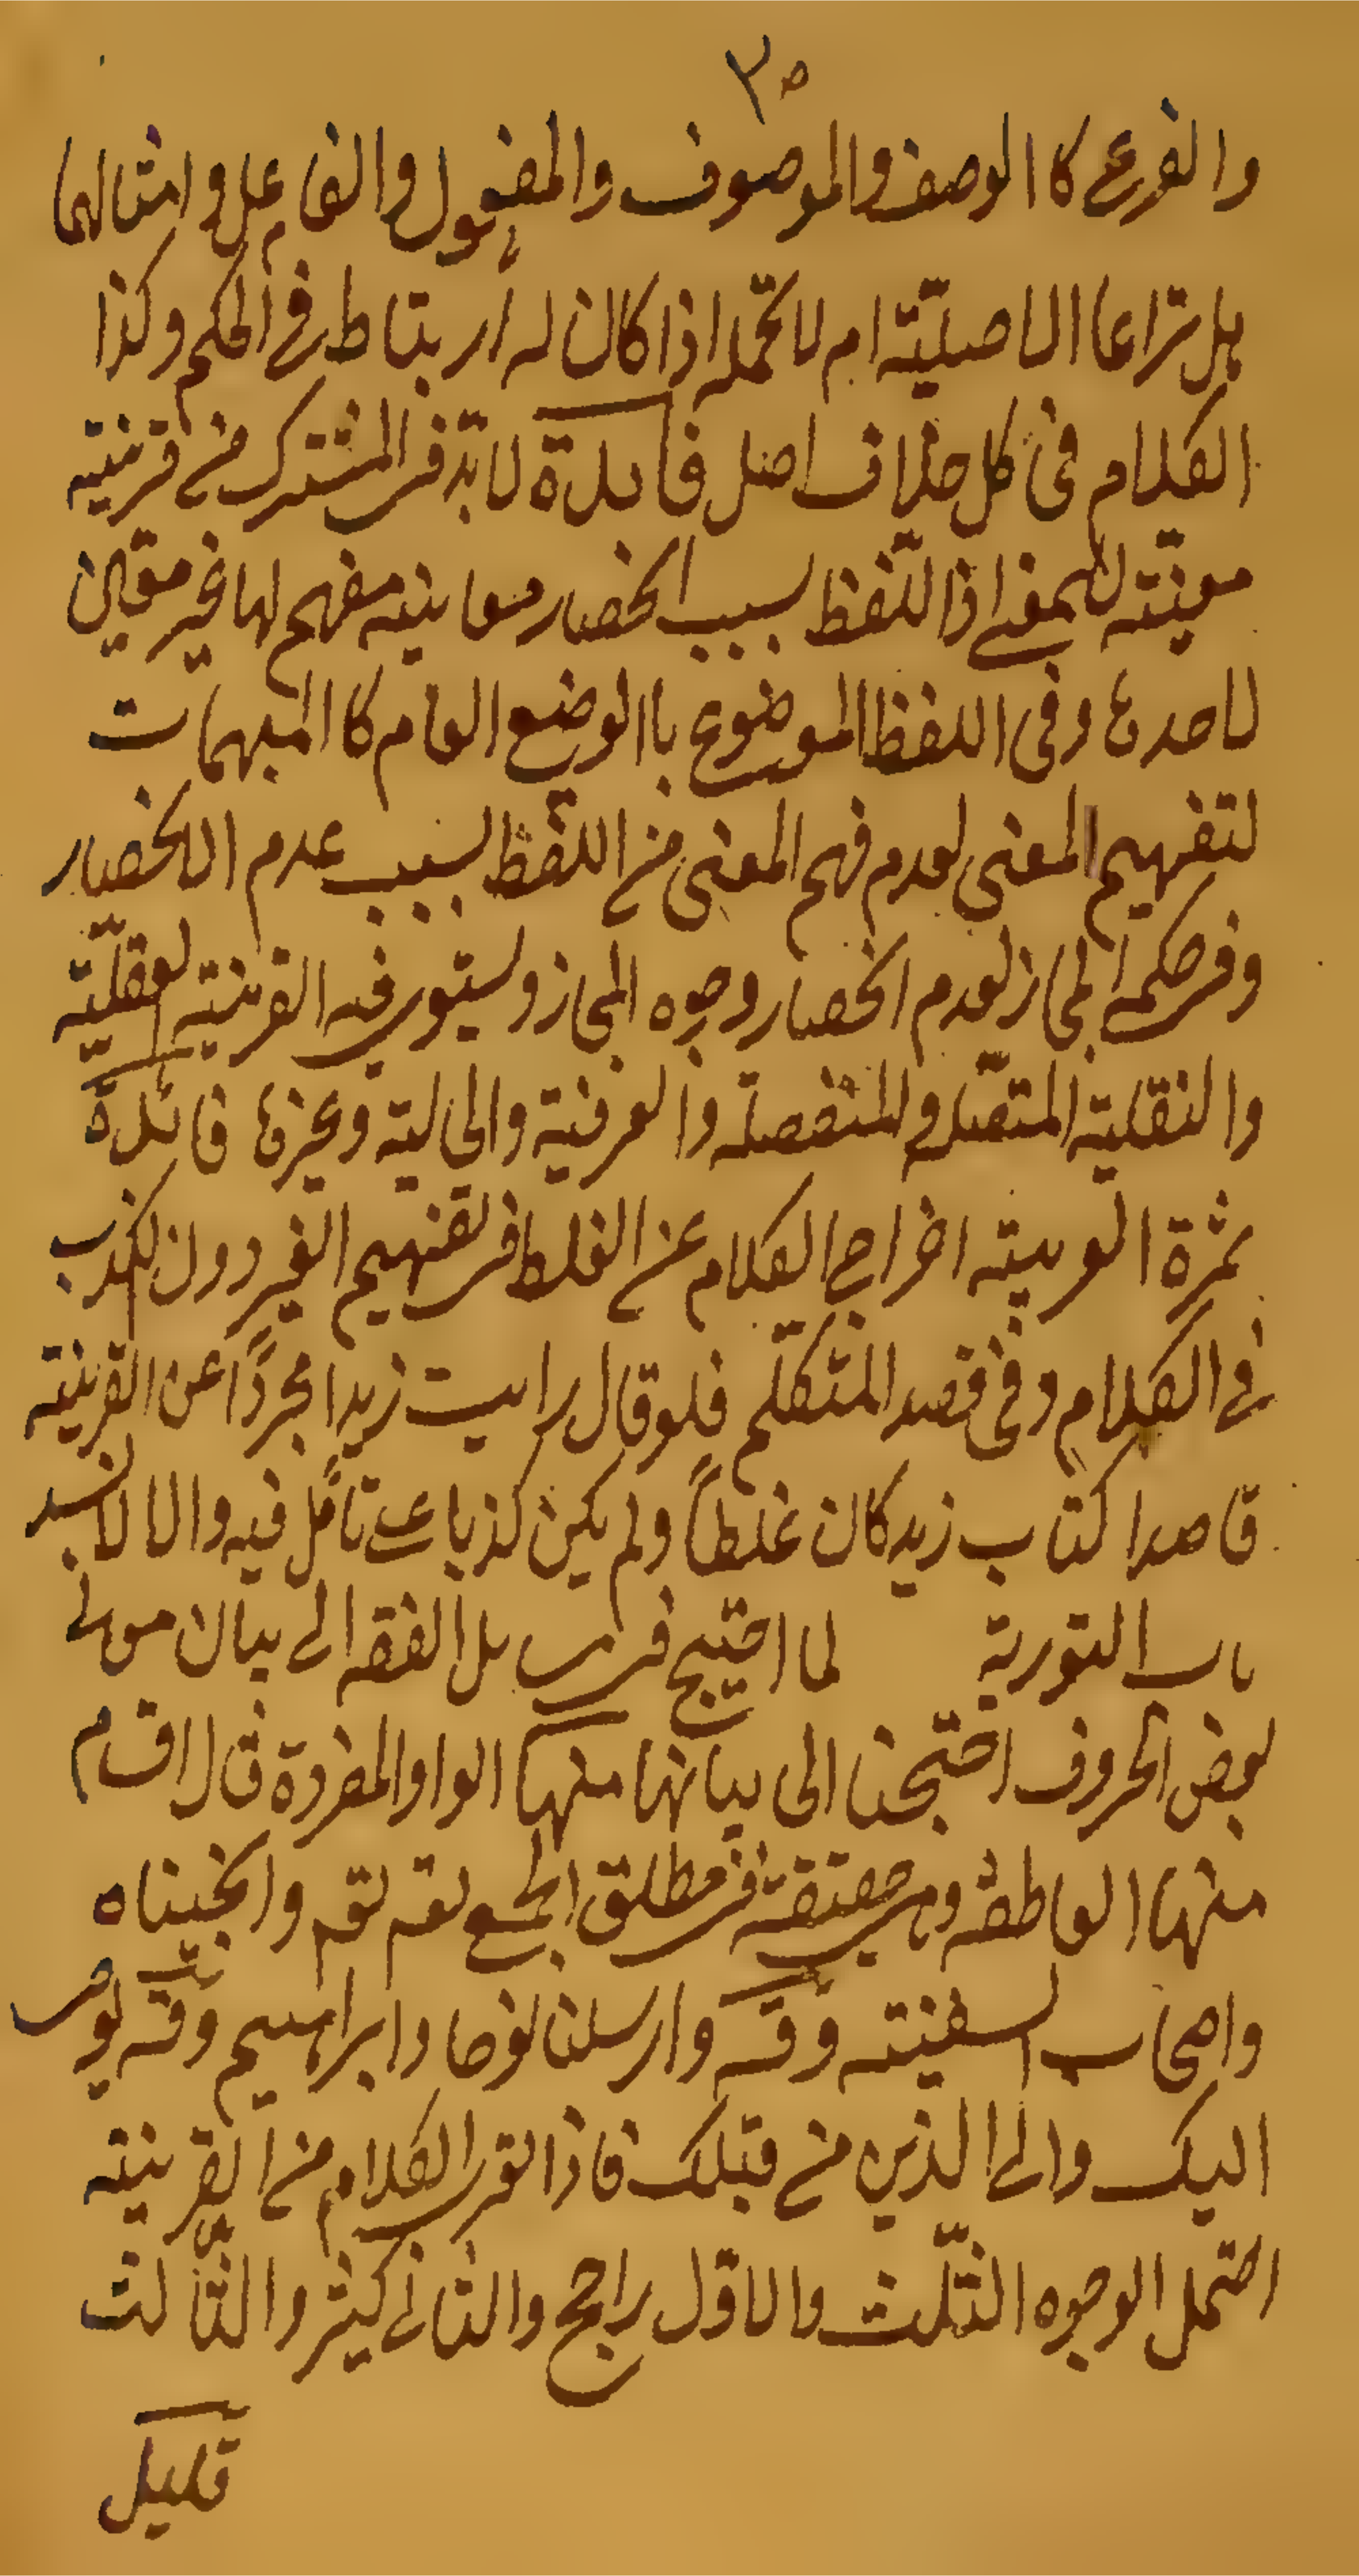 ٣٥
والفرع كاالوصف والموصوف والمفعول والفاعل وامثالهما
هل تراعا الاصليّة ام لا تحمله اذا كان له ارتباط في الحكم وكذا
الكلام فى كل خلاف اصل فايدة لا بدّ فى المشترك من قرينة
معيّنة للمعنى اذ اللّفظ بسبب انحصار معاينه مفهم لها غير معيّن
لاحدها وفى اللفظ الموضوع باالوضع العام كاالمبهمات
لتفهيم المعنى لعدم فهم المعنى من اللفظ بسبب عدم الانحصار
وفى حكمه المجاز لعدم انحصار وجوه المجاز ويستوى فيه القرينة العقليّة
والنقلية المتصله والمنفصله والعرفية والحالية وغيرها فائدة
ثمرة العربية اخراج الكلام عن الغلط فى تفهيم الغير دون الكذب
في الكلام وفى قصد المتكلّم فلو قال رايت زيدا مجرّدًا عن القرينة
قاصدا كتاب زيد كان غلطاً ولم يكن كذبا تأمّل فيه والا لانسد
باب التورية لما احتيج فى مسايل الفقه الى بيان معانى
بعض الحروف احتجنا الى بيانها منها الواو المفردة قال اقسام
منها العاطفة وهى حقيقة فى مطلق الجمع لقه تقم وانجيناه
واصحاب السفينة وقه وارسلنا نوحا وابراهيم وقه يوحى
اليك والى الذين من قبلك فاذا تعرى الكلام من القرينة
احتمل الوجوه الثّلث والاوّل راجح والثانى كثير والثّالث
قليل